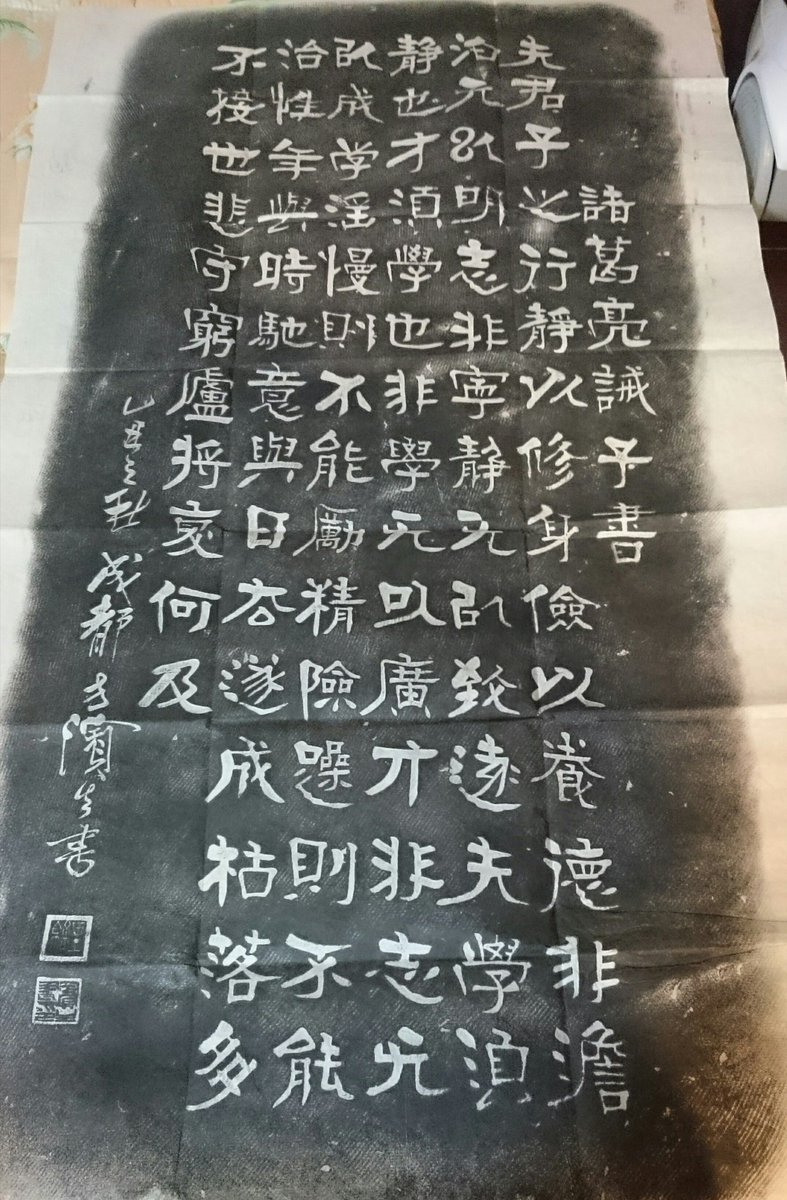 諸葛亮誡子書
夫君子之行靜以修身儉以養德非澹
泊元以明志非寧靜元以致遠夫學須
靜也才須學也非學元以廣才非志元
以成学淫慢則不能勵精險躁則不能
治性年與時馳意與日去遂成枯落多
不接世悲守窮廬將哀何及
乙丑之秋 成都方濱生書